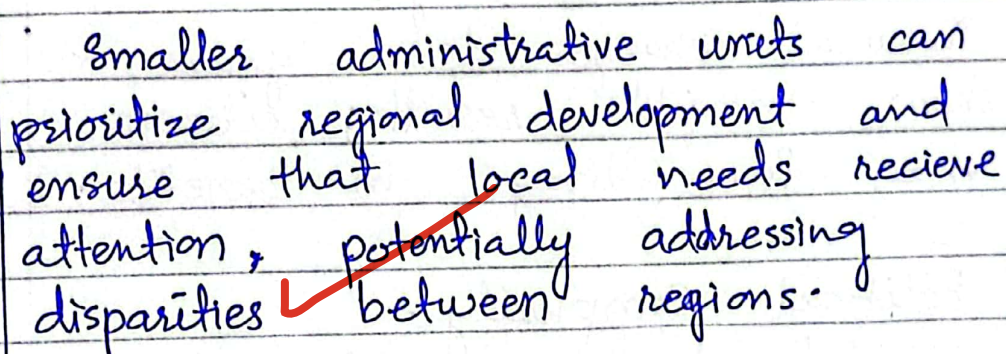 Smaller administrative units can
prioritize regional development and
ensure that local needs recieve
attention, potentially addressing
disparities between regions.